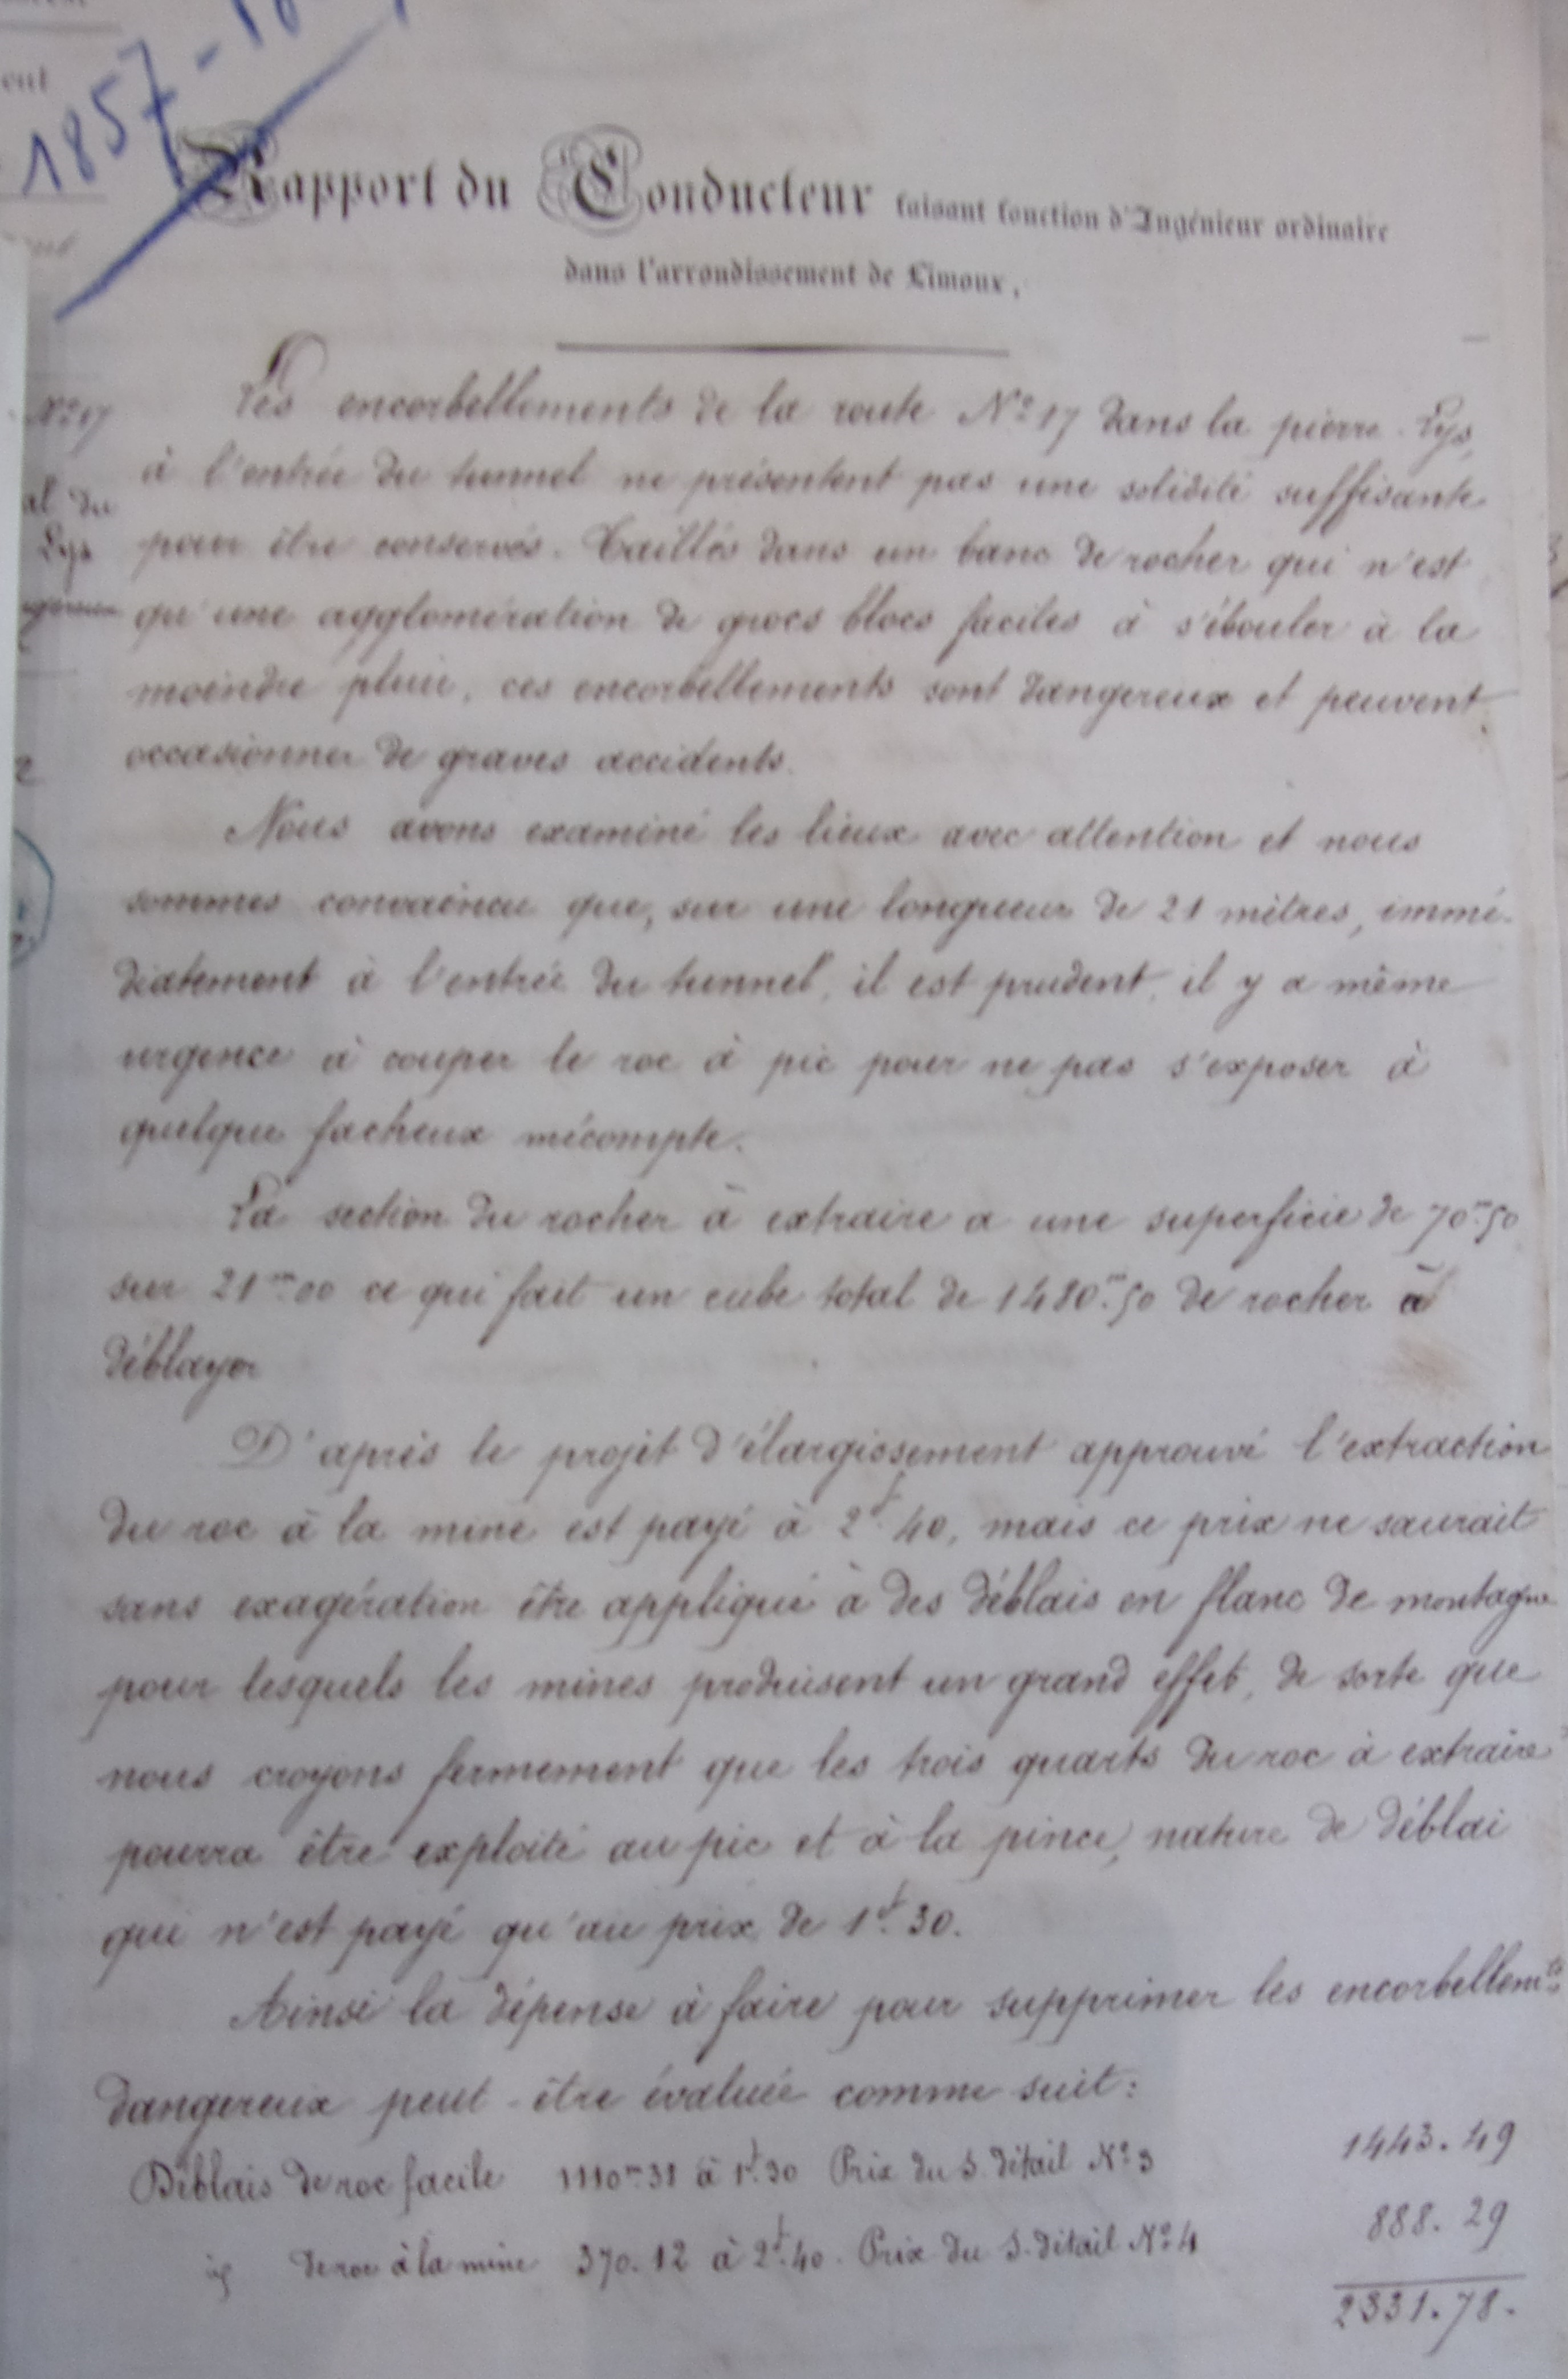 1857-18
Rapport du Conducteur faisant fonction d'Ingénieur ordinaire
dans l'arrondissement de Limoux,
Les encorbellements de la route Nº 17 dans la pierre-Lys,
à l'entrée du tunnel ne présentent pas une solidité suffisante
pour être conservés. Taillés dans un banc de rocher qui n'est
qu'une agglomération de grocs blocs faciles à s'ébouler à la
moindre pluie, ces encorbellements sont dangereux et peuvent
occasionner de graves accidents.
Nous avons examiné les lieux avec attention et nous
sommes convaincu que, sur une longueur de 21 mètres, immé-
diatement à l'entrée du tunnel, il est prudent, il y a même
urgence à couper le roc à pic pour ne pas s'exposer à
quelque facheux mécompte.
La section du rocher à extraire a une superficie de 70m.50
sur 21m.00 ce qui fait un cube total de 1480m.50 de rocher à
déblayer
D'après le projet d'élargissement approuvé l'extraction
du roc à la mine est payé à 2f.40, mais ce prix ne saurait
sans exagération être appliqué à des déblais en flanc de montagne
pour lesquels les mines produisent un grand effet, de sorte que
nous croyons fermement que les trois quarts du roc à extraire
pourra être exploité au pic et à la pince, nature de déblai
qui n'est payé qu'au prix de 1f.30.
Ainsi la dépense à faire pour supprimer les encorbellemts
dangereux peut-être évaluée comme suit:
Déblais de roc facile 1110m.31 à 1f.30 Prix du S. détail Nº 3 1443.49
id de roc à la mine 370.12 à 2f.40. Prix du S. détail Nº 4 888.29
2331.78.
Nº 17
al du
Lys